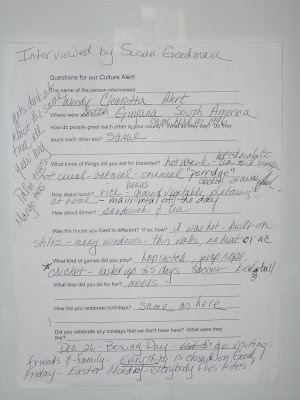 Interviewed by Susan Goodman
Questions for our Culture Alert!
The name of the person interviewed
Wendy Alert
Where were you born? Guyana South America
How do people greet each other in your country? What do they say? Do they
touch each other too? Same
What kinds of things did you eat for breakfast? hot drink - tea milk
hot chocolate
not cereal - oatmeal - cornmeal "porridge"
How about lunch? rice - ground vegetable plantains
at home - main meal of the day
How about dinner? sandwich & tea
Was the house you lived in different? If so, how? it was hot - built on
stilts - many windows - thin walls no heat or AC
What kind of games did you play? hopscotch, jump rope,
*cricket - lasted up 3-5 days soccer kick ball
What else did you do for fun? movies
How did you celebrate birthdays? same as here
Did you celebrate any holidays that we don't have here? What were they
like?
Dec 26 - Boxing Day - go visiting
friends & family. Everything is closed on Good
Friday - Easter Monday - everybody flies kites!